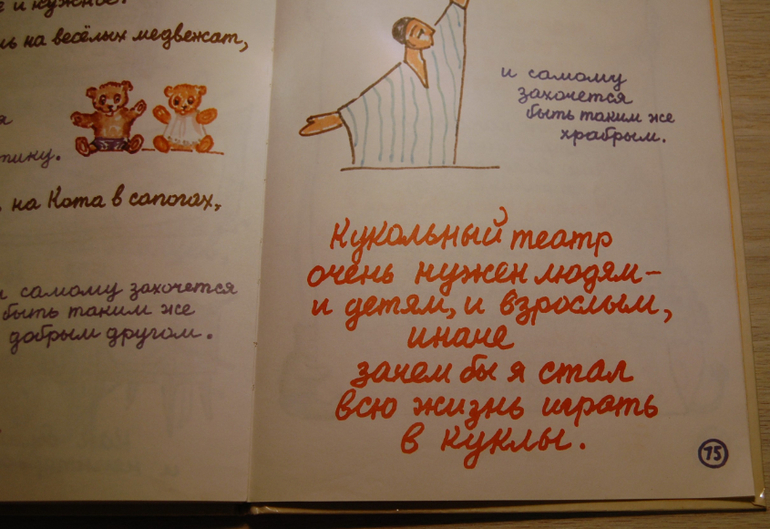 и нужное.
на весёлых медвежат,
на Кота в сапогах,
самому захочется
быть таким же
добрым другом.
и самому
захочется
быть таким же
храбрым.
Кукольный театр
очень нужен людям—
и детям, и взрослым,
иначе
зачем бы я стал
всю жизнь играть
в куклы.
75